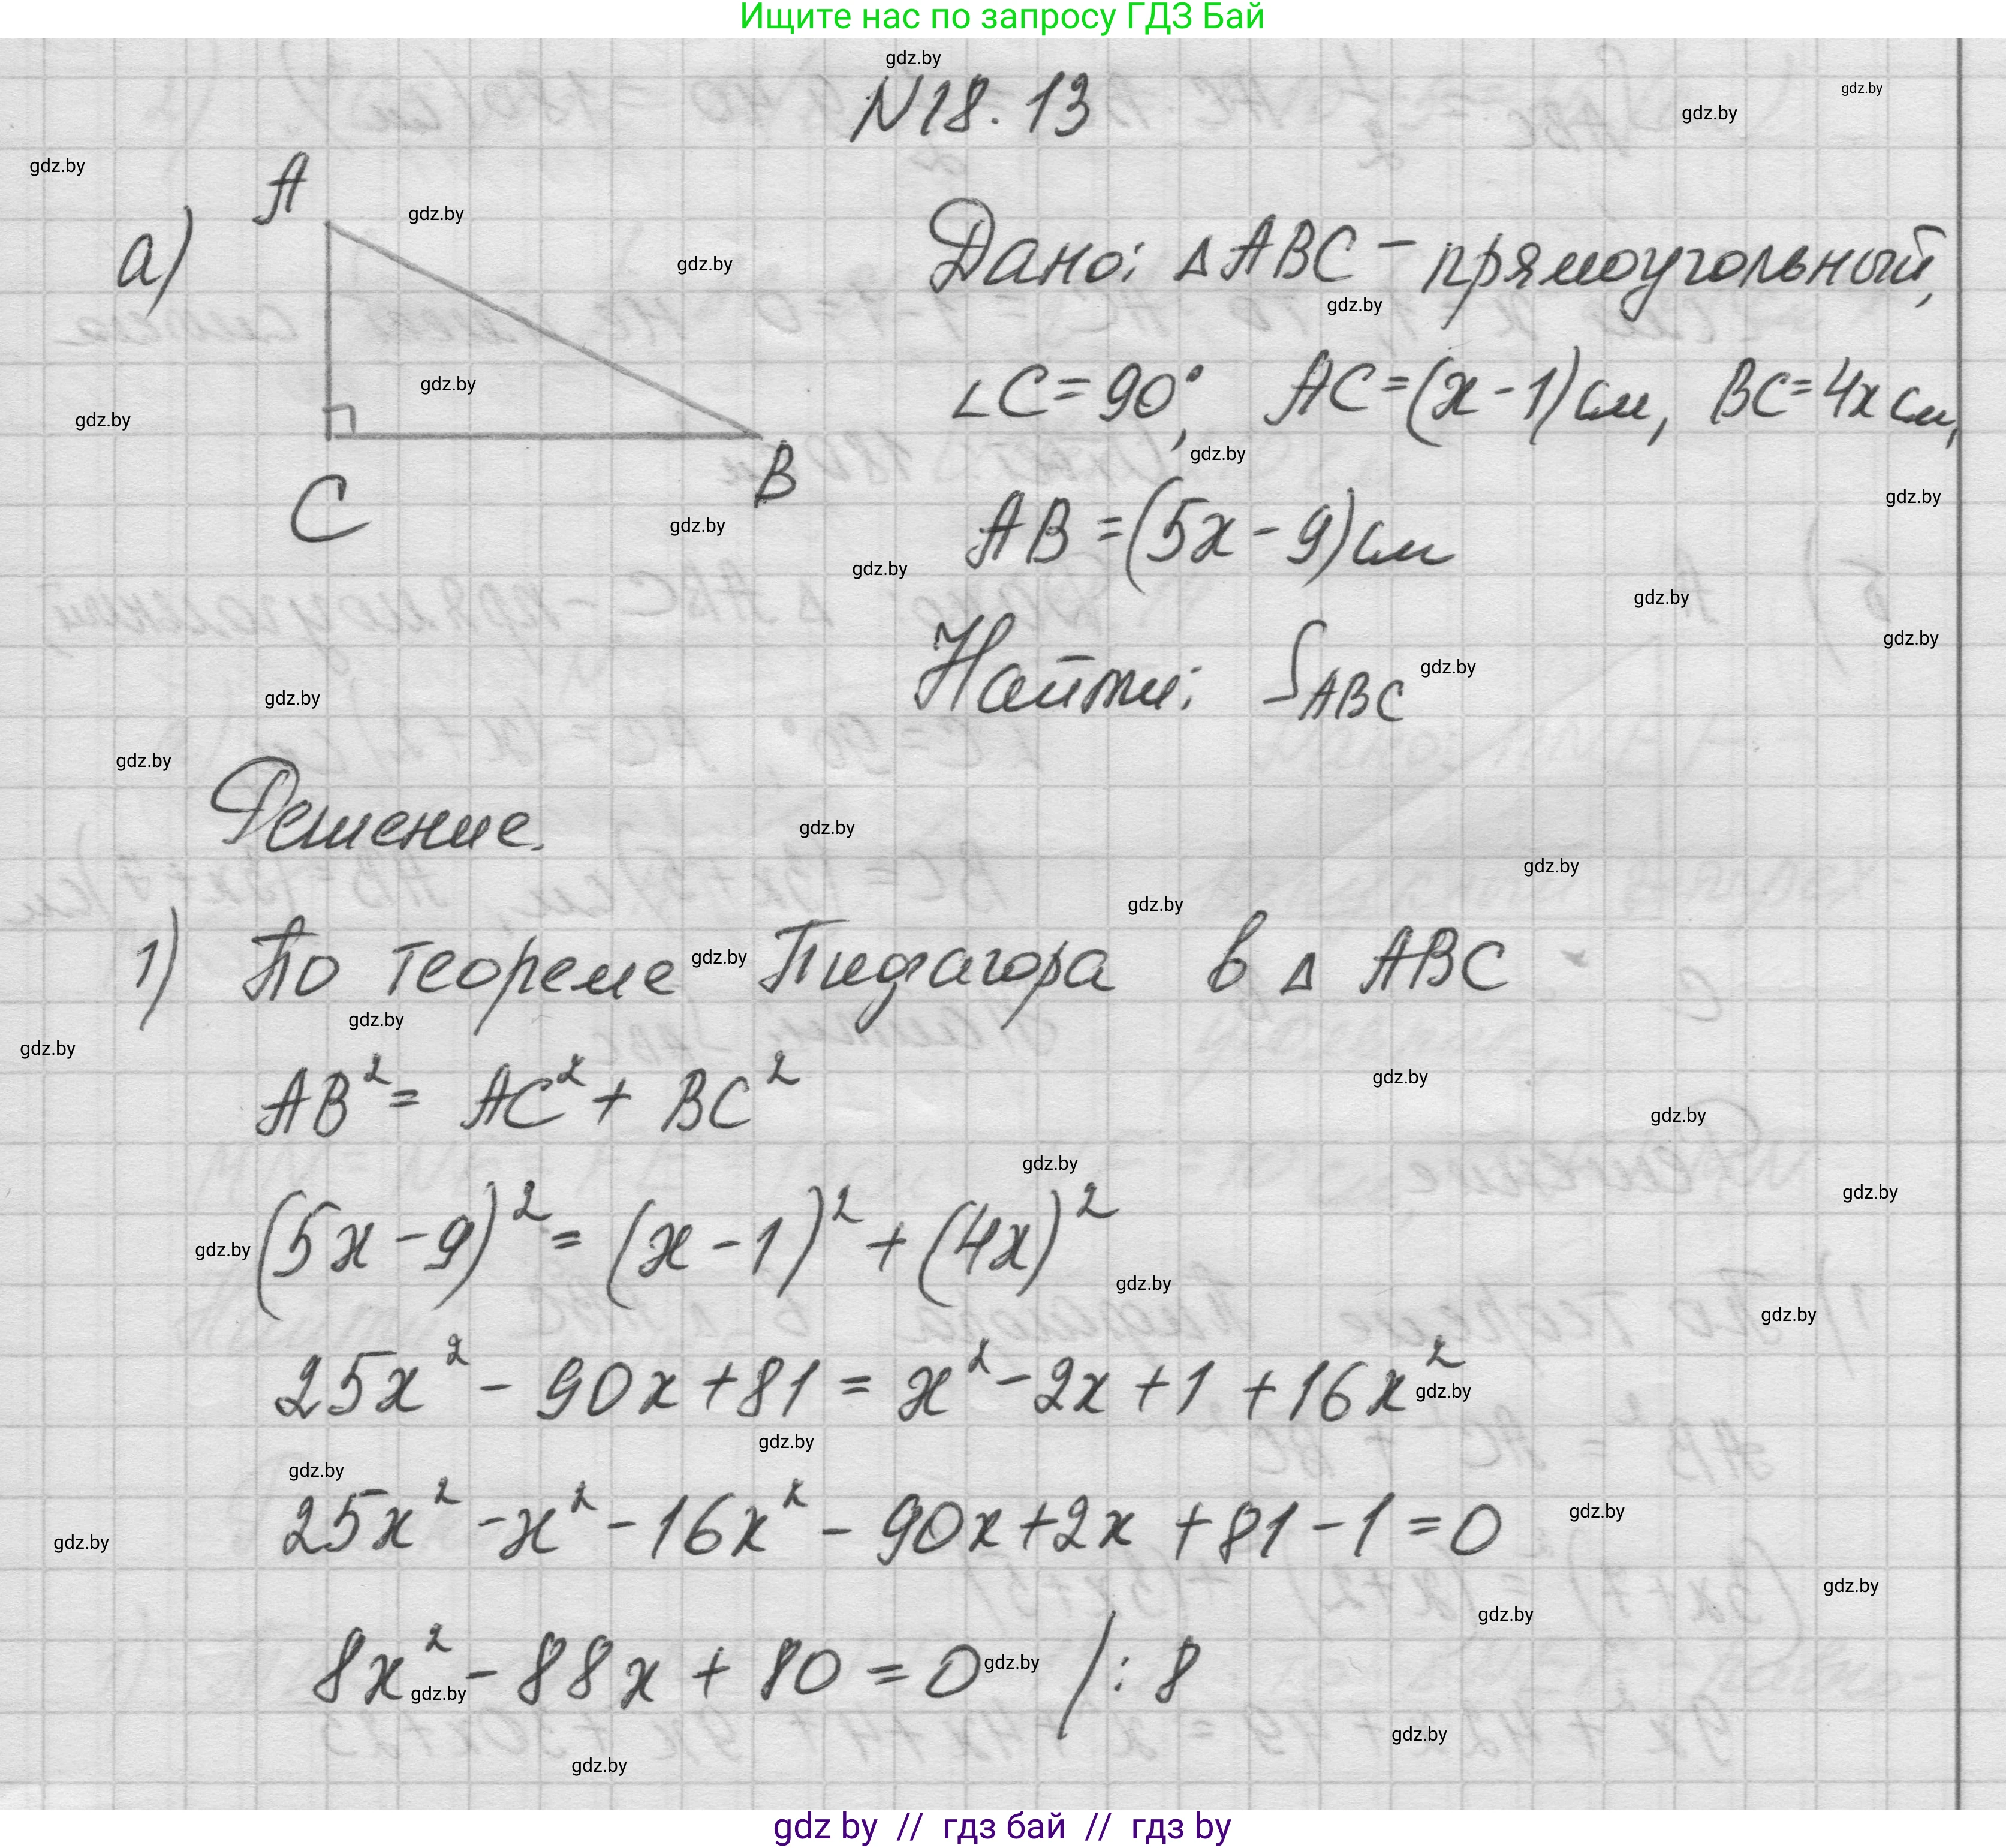 Ищите нас по запросу ГДЗ Бай
N18.13
а)
A
C
B
Дано: △ABC - прямоугольный,
∠C = 90°, AC = (x - 1) см, BC = 4x см,
AB = (5x - 9) см
Найти: S_ABC
Решение.
1) По теореме Пифагора в △ ABC
AB² = AC² + BC²
(5x - 9)² = (x - 1)² + (4x)²
25x² - 90x + 81 = x² - 2x + 1 + 16x²
25x² - x² - 16x² - 90x + 2x + 81 - 1 = 0
8x² - 88x + 80 = 0 / : 8
gdz.by
gdz by // гдз бай // гдз by